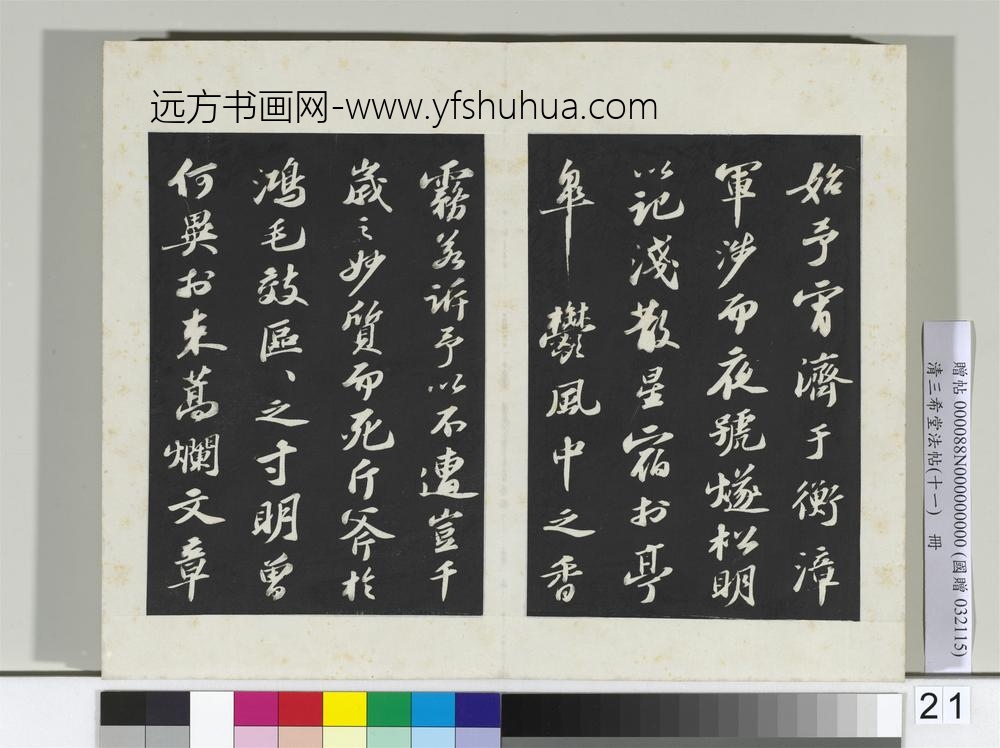 远方书画网-www.yfshuhua.com
始予宵濟于衡漳
軍涉而夜號燧松明
以記淺散星宿於亭
皋鬱風中之香
霧若訴予以不遭豈千
歲之妙質而死斤斧於
鴻毛效區、之寸明曾
何異於束蒿爛文章
贈帖 000088N000000000 (國贈 032115)
清三希堂法帖(十一) 冊
21